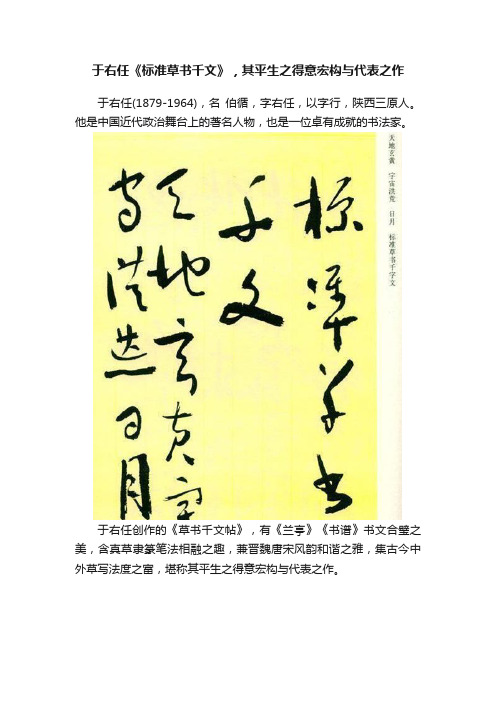 于右任《标准草书千文》，其平生之得意宏构与代表之作
于右任(1879-1964)，名 伯循，字右任，以字行，陕西三原人。
他是中国近代政治舞台上的著名人物，也是一位卓有成就的书法家。
天地玄黄 宇宙洪荒 日月 标准草书千字文
标准草书
千文
天地玄黄宇
宙洪荒日月
于右任创作的《草书千文帖》，有《兰亭》《书谱》书文合璧之
美，含真草隶篆笔法相融之趣，兼晋魏唐宋风韵和谐之雅，集古今中
外草写法度之富，堪称其平生之得意宏构与代表之作。